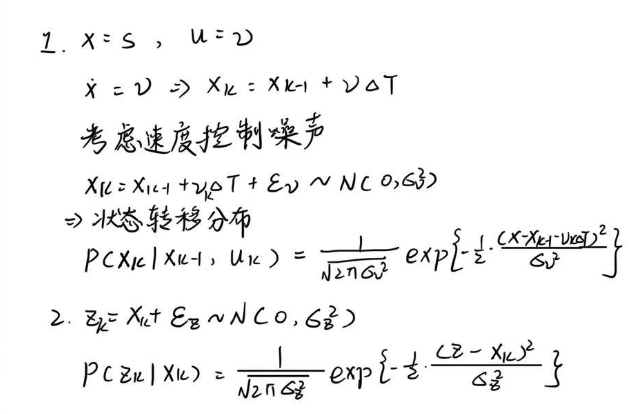 1. x = s , u = v
ẋ = v ⇒ xₖ = xₖ₋₁ + vΔT
考虑速度控制噪声
xₖ = xₖ₋₁ + vₖΔT + εᵥ ~ N(0, σᵥ²)
⇒ 状态转移分布
P(xₖ | xₖ₋₁, uₖ) = 1/√(2πσᵥ²) exp{-1/2 · (x - xₖ₋₁ - vₖΔT)²/σᵥ²}
2. zₖ = xₖ + ε_z ~ N(0, σ_z²)
P(zₖ | xₖ) = 1/√(2πσ_z²) exp{-1/2 · (z - xₖ)²/σ_z²}